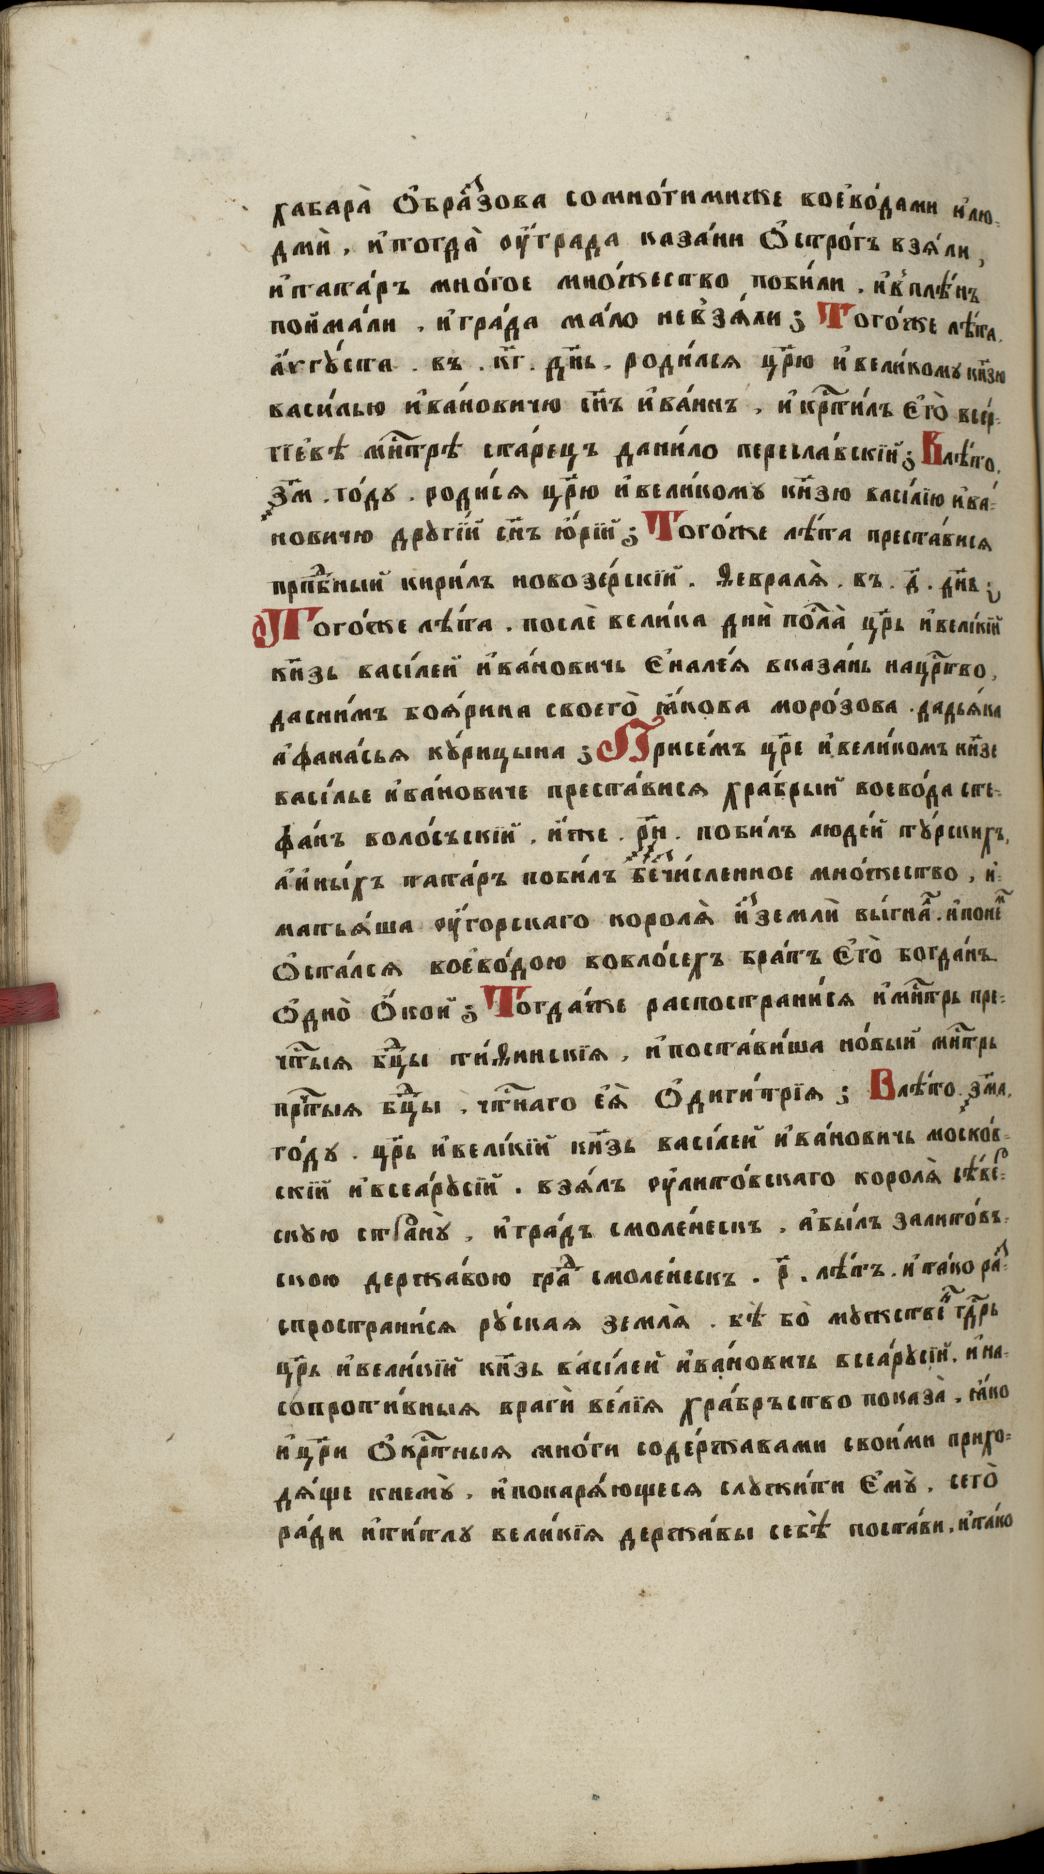 хабара̀ Ѻ҆бра́зова сомно́гимиже воево́дами и҆лю-
дмѝ , и҆тогда̀ ѹ҆града каза́ни Ѻ҆стро́гъ взѧ́ли ,
и҆тата́ръ мно́гое мно́жество поби́ли . и҆впл ѣ́нъ
пойма́ли . и҆гра́да ма́ло невзѧ́ли ; Того́же лѣ́та .
а҆́вгꙋста . въ . к҃г . дн҃ь . роди́лсѧ цр҃ю и҆вели́комꙋ кн҃зю
васи́лью и҆ва́новичю сн҃ъ и҆ва́ннъ , и҆крⷭ҇ти́лъ Є҆го̀ всер-
гїевѣ мнⷭ҇трѣ ста́рецъ дани́ло переславскїй ; Влѣ́то ,
зм҃ . го́дꙋ . роди́сѧ цр҃ю и҆вели́комꙋ кн҃зю васи́лїю и҆ва́-
новичю дрꙋгі́й сн҃ъ ю҆́рїй ; Того́же лѣ́та преста́висѧ
прпⷣбный кири́лъ новозе́рскїй . Ѳевралѧ̀ . въ . д҃ . дн҃ь ;
Того́же лѣ́та . послѐ вели́ка днѝ посла̀ цр҃ь и҆вели́кїй
кн҃зь васі́лей и҆ва́новичь Є҆нале́ѧ вказа́нь нацрⷭ҇тво ,
дасни́мъ боѧ́рина своего̀ ꙗ҆́кова моро́зова . дадьѧ́ка
а҆фана́сьѧ кꙋ́рицына ; Присе́мъ цр҃е и҆вели́комъ кн҃зе
васі́лье и҆ва́новиче преста́висѧ хра́брый воево́да сте-
фа́нъ воло́съскїй , и҆́же . рк҃и . поби́лъ люде́й тꙋ́рскихъ ,
а҆и҆ны́хъ тата́ръ поби́лъ бечи́сленное мно́жество , и҆-
матьѧ́ша ѹ҆го́рскаго королѧ̀ и҆зземлѝ вы́гнаⷧ . и҆понеⷨ
Ѻ҆ста́лсѧ воево́дою вовло́сехъ бра́тъ Є҆го̀ богда́нъ
Ѻ҆дно̀ Ѻ҆́кой ; Тогда́же распострани́сѧ и҆мнⷭ҇трь пре-
чⷭ҇тыѧ бцⷣы ти́ѳинскїѧ , и҆поста́виша но́вый мнⷭ҇трь
прⷭ҇тыѧ бцⷣы , чⷭ҇тнаго еѧ̀ Ѻ҆диги́трїѧ ; Влѣ́то зм҃а .
го́дꙋ . цр҃ь и҆вели́кїй кн҃зь васі́лей и҆ва́новичь моско́в-
скїй и҆всеа́рꙋсїй . взѧ́лъ ѹ҆лито́вскаго королѧ̀ сѣ́веⷬ-
скꙋю странꙋ̀ , и҆гра́дъ смоле́нескъ , а҆бы́лъ залито́въ-
скою держа́вою граⷣ смоле́нескъ . р҃і . лѣ́тъ . и҆та́ко раз-
спространи́сѧ рꙋ́скаѧ землѧ̀ . бѣ̀ бо̀ мꙋжествеⷩ гдⷭ҇рь
цр҃ь и҆вели́кїй кн҃зь васі́лей и҆ва́новичь всеа́рꙋсїй . и҆на-
сопроти́вныѧ врагѝ ве́лїѧ хра́бръство показа̀ , ꙗ҆́ко
и҆цр҃и Ѻ҆крⷭ҇тныѧ мно́ги содержа́вами свои́ми прихо-
дѧ́ще кнемꙋ̀ . и҆покарѧ́ющесѧ слꙋжи́ти Є҆мꙋ̀ . сего̀
ра́ди и҆ти́тлꙋ вели́кїѧ держа́вы себѣ̀ поста́ви , и҆та́ко